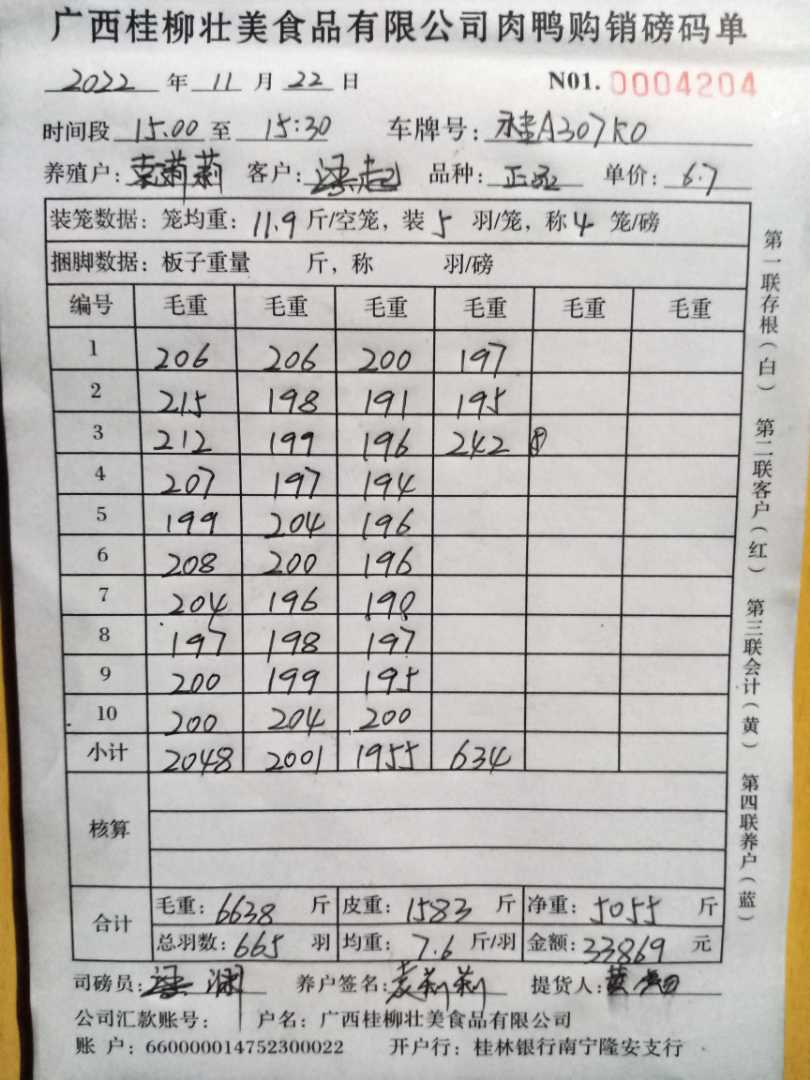 广西桂柳壮美食品有限公司肉鸭购销磅码单
2022 年 11 月 22 日 N01. 0004204
时间段 15.00 至 15:30 车牌号: 桂A307K0
养殖户: 莉莉 客户: 品种: 单价: 6.7
装笼数据: 笼均重: 11.9 斤/空笼, 装 5 羽/笼, 称 4 笼/磅
捆脚数据: 板子重量 斤, 称 羽/磅
编号 毛重 毛重 毛重 毛重 毛重 毛重
1 206 206 200 197
2 215 198 191 195
3 212 199 196 242
4 207 197 194
5 199 204 196
6 208 200 196
7 204 196 190
8 197 198 197
9 200 199 195
10 200 204 200
小计 2048 2001 1955 634
核算
合计 毛重: 6638 斤 皮重: 1583 斤 净重: 5055 斤
总羽数: 665 羽 均重: 7.6 斤/羽 金额: 33869 元
司磅员: 养户签名: 莉莉 提货人:
公司汇款账号: 户名: 广西桂柳壮美食品有限公司
账 户: 660000014752300022 开户行: 桂林银行南宁隆安支行
第一联存根(白) 第二联客户(红) 第三联会计(黄) 第四联养户(蓝)